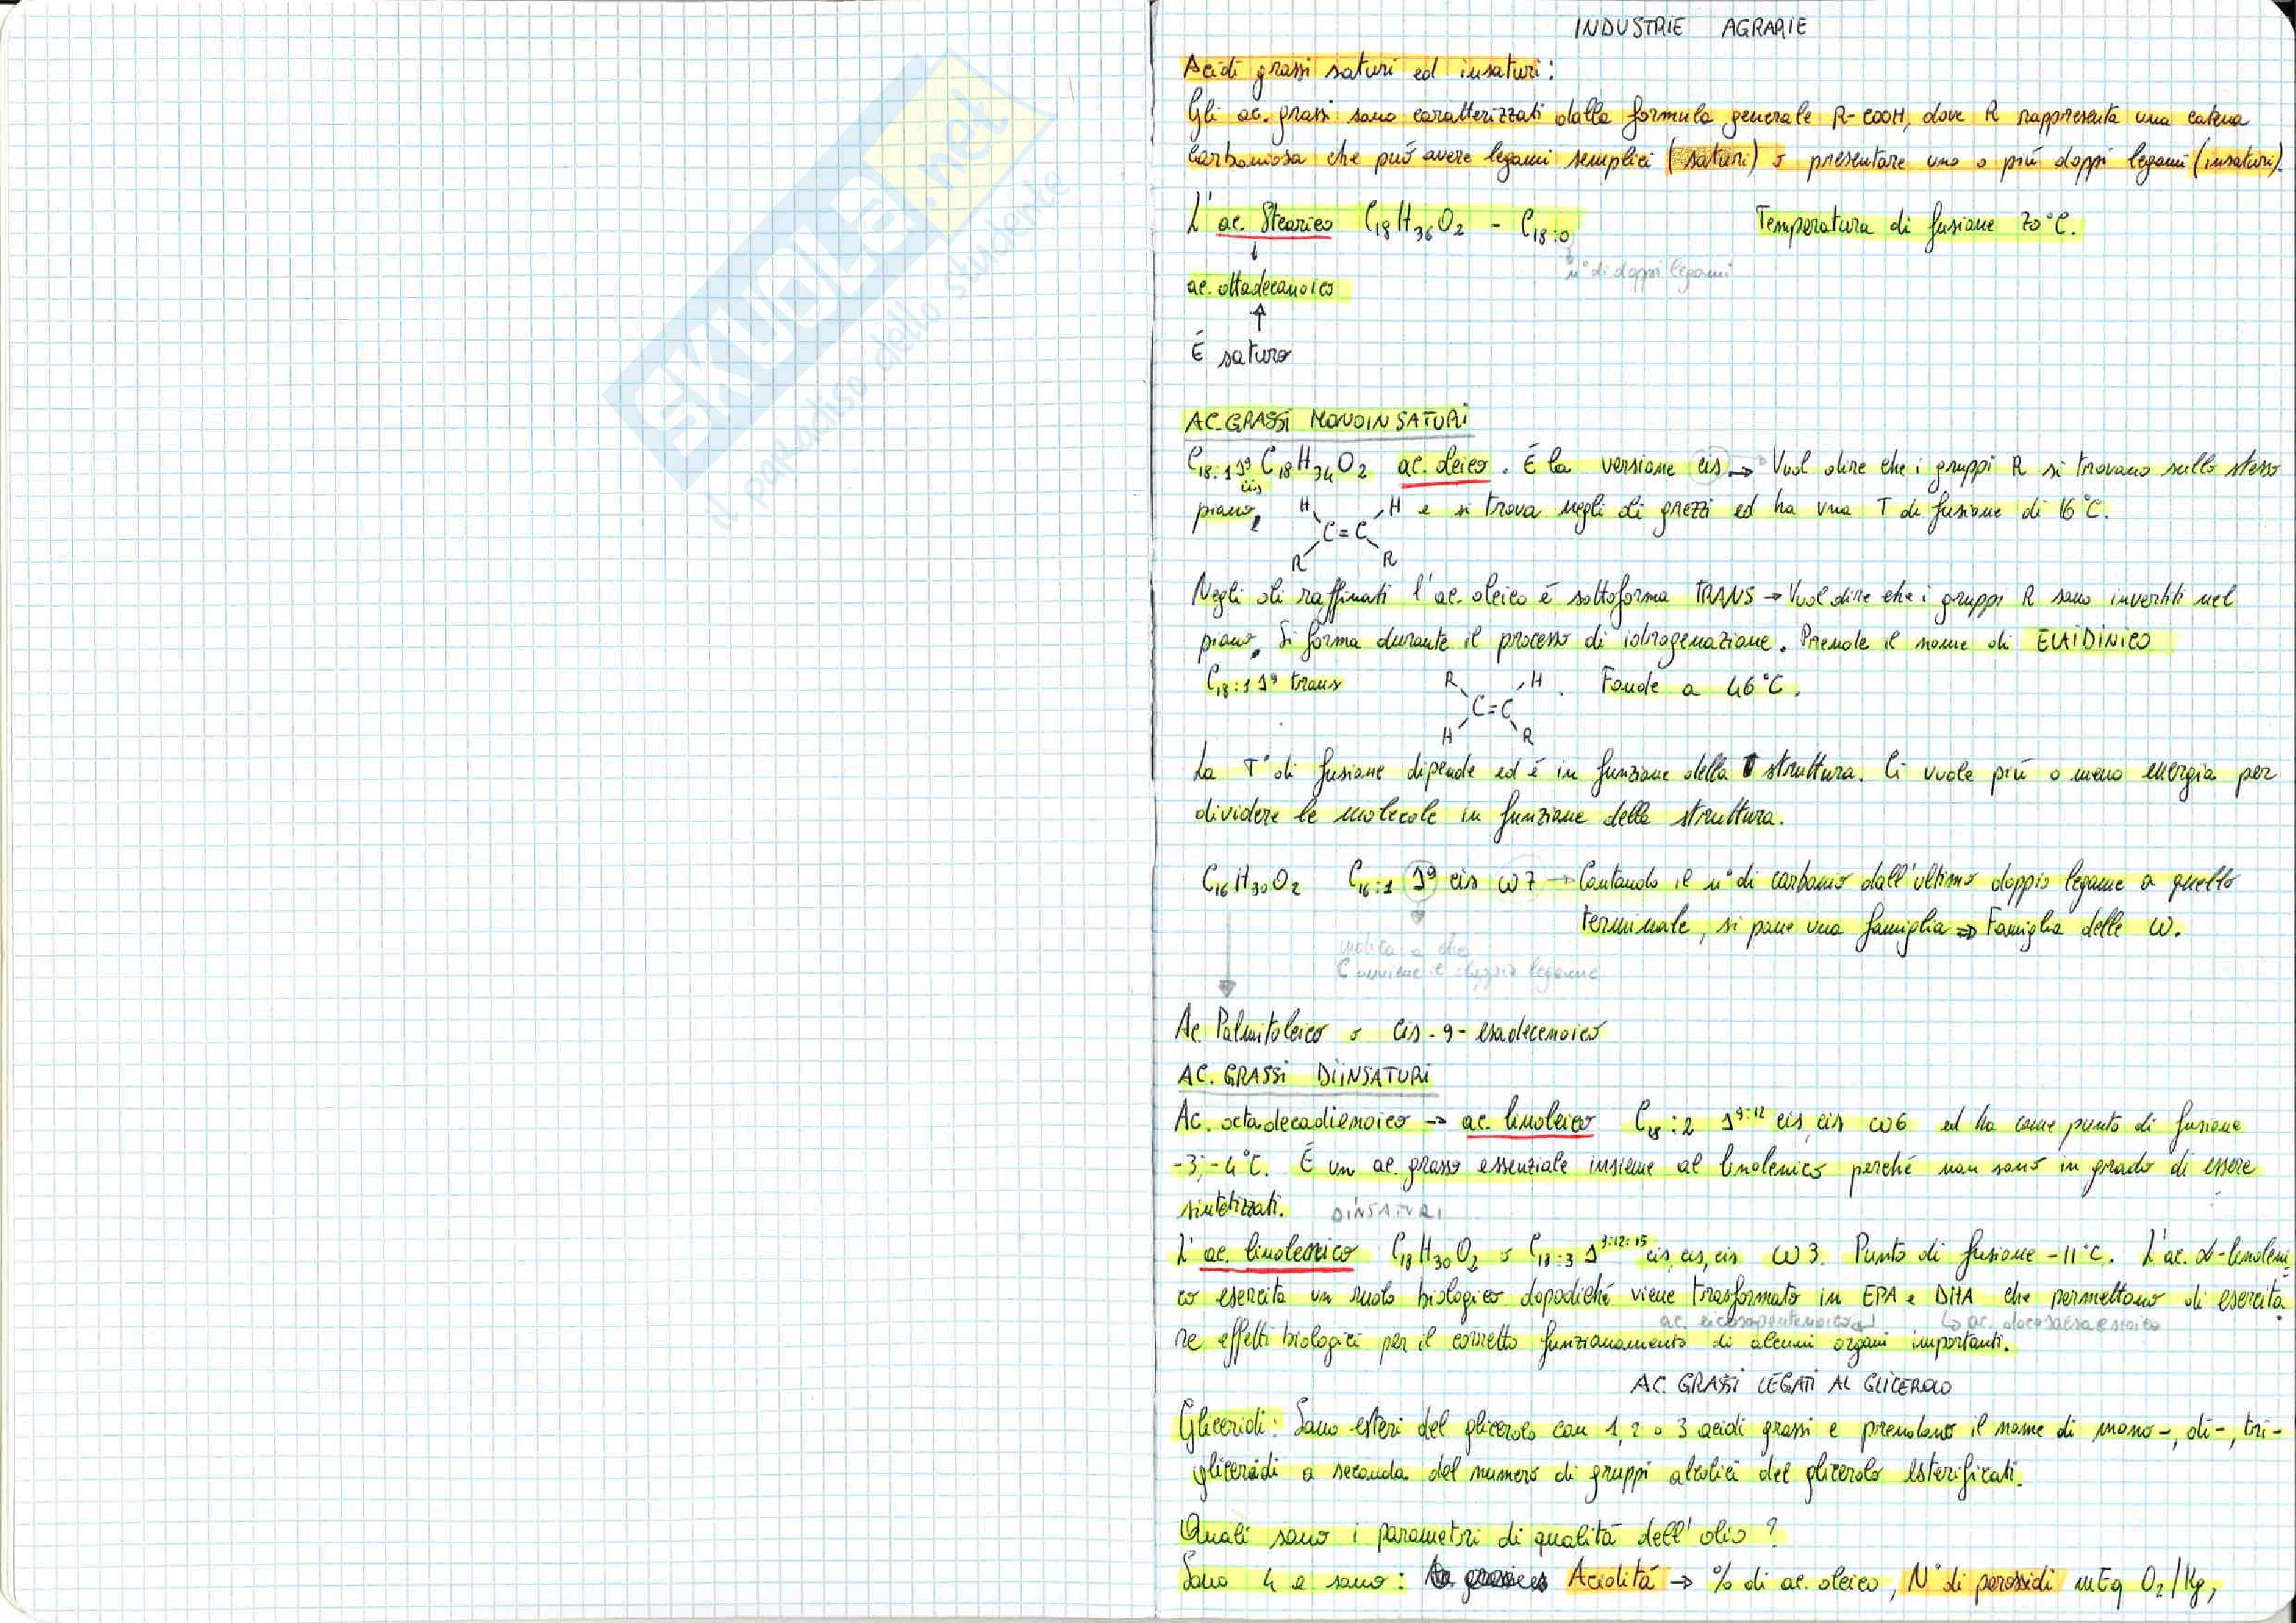 INDUSTRIE AGRARIE
Acidi grassi saturi ed insaturi:
Gli ac. grassi sono caratterizzati dalla formula generale R-COOH, dove R rappresenta una catena
carboniosa che può avere legami semplici (saturi) o presentare uno o più doppi legami (insaturi).
L'ac. Stearico C18H36O2 - C18:0 Temperatura di fusione 70°C.
↓ n° di doppi legami
ac. ottadecanoico
↑
É saturo
AC. GRASSI MONOINSATURI
C18:1 Δ9 cis C18H34O2 ac. oleico. É la versione cis → Vuol dire che i gruppi R si trovano sullo stesso
piano, e si trova negli oli grezzi ed ha una T di fusione di 16°C.
H H
C=C
R R
Negli oli raffinati l'ac. oleico é sottoforma TRANS → Vuol dire che i gruppi R sono invertiti nel
piano. Si forma durante il processo di idrogenazione. Prende il nome di ELAIDINICO
C18:1 Δ9 trans Fonde a 46°C.
R H
C=C
H R
La T° di fusione dipende ed é in funzione della struttura. Ci vuole più o meno energia per
dividere le molecole in funzione della struttura.
C16H30O2 C16:1 Δ9 cis ω7 → Contando il n° di carbonio dall'ultimo doppio legame a quello
terminale, si pone una famiglia ⇒ Famiglia delle ω.
indica a che
C avviene il doppio legame
Ac Palmitoleico o cis-9-esadecenoico
AC. GRASSI DIINSATURI
Ac. octadecadienoico → ac. linoleico C18:2 Δ9:12 cis, cis ω6 ed ha come punto di fusione
-3;-4°C. É un ac. grasso essenziale insieme al linolenico perché non sono in grado di essere
sintetizzati. DINSATURI
L'ac. linolenico C18H30O2 o C18:3 Δ9:12:15 cis, cis, cis ω3. Punto di fusione -11°C. L'ac. α-linoleni
co esercita un ruolo biologico dopodiché viene trasformato in EPA e DHA che permettono di esercita
ac. eicosapentenoico ↳ ac. docosaesaenoico
re effetti biologici per il corretto funzionamento di alcuni organi importanti.
AC. GRASSI LEGATI AL GLICEROLO
Gliceridi: Sono esteri del glicerolo con 1, 2 o 3 acidi grassi e prendono il nome di mono-, di-, tri-
gliceridi a seconda del numero di gruppi alcolici del glicerolo esterificati.
Quali sono i parametri di qualità dell'olio?
Sono 4 e sono: Acidità → % di ac. oleico, N° di perossidi mEq O2/Kg,
SKUOLA.net
il paradiso dello studente